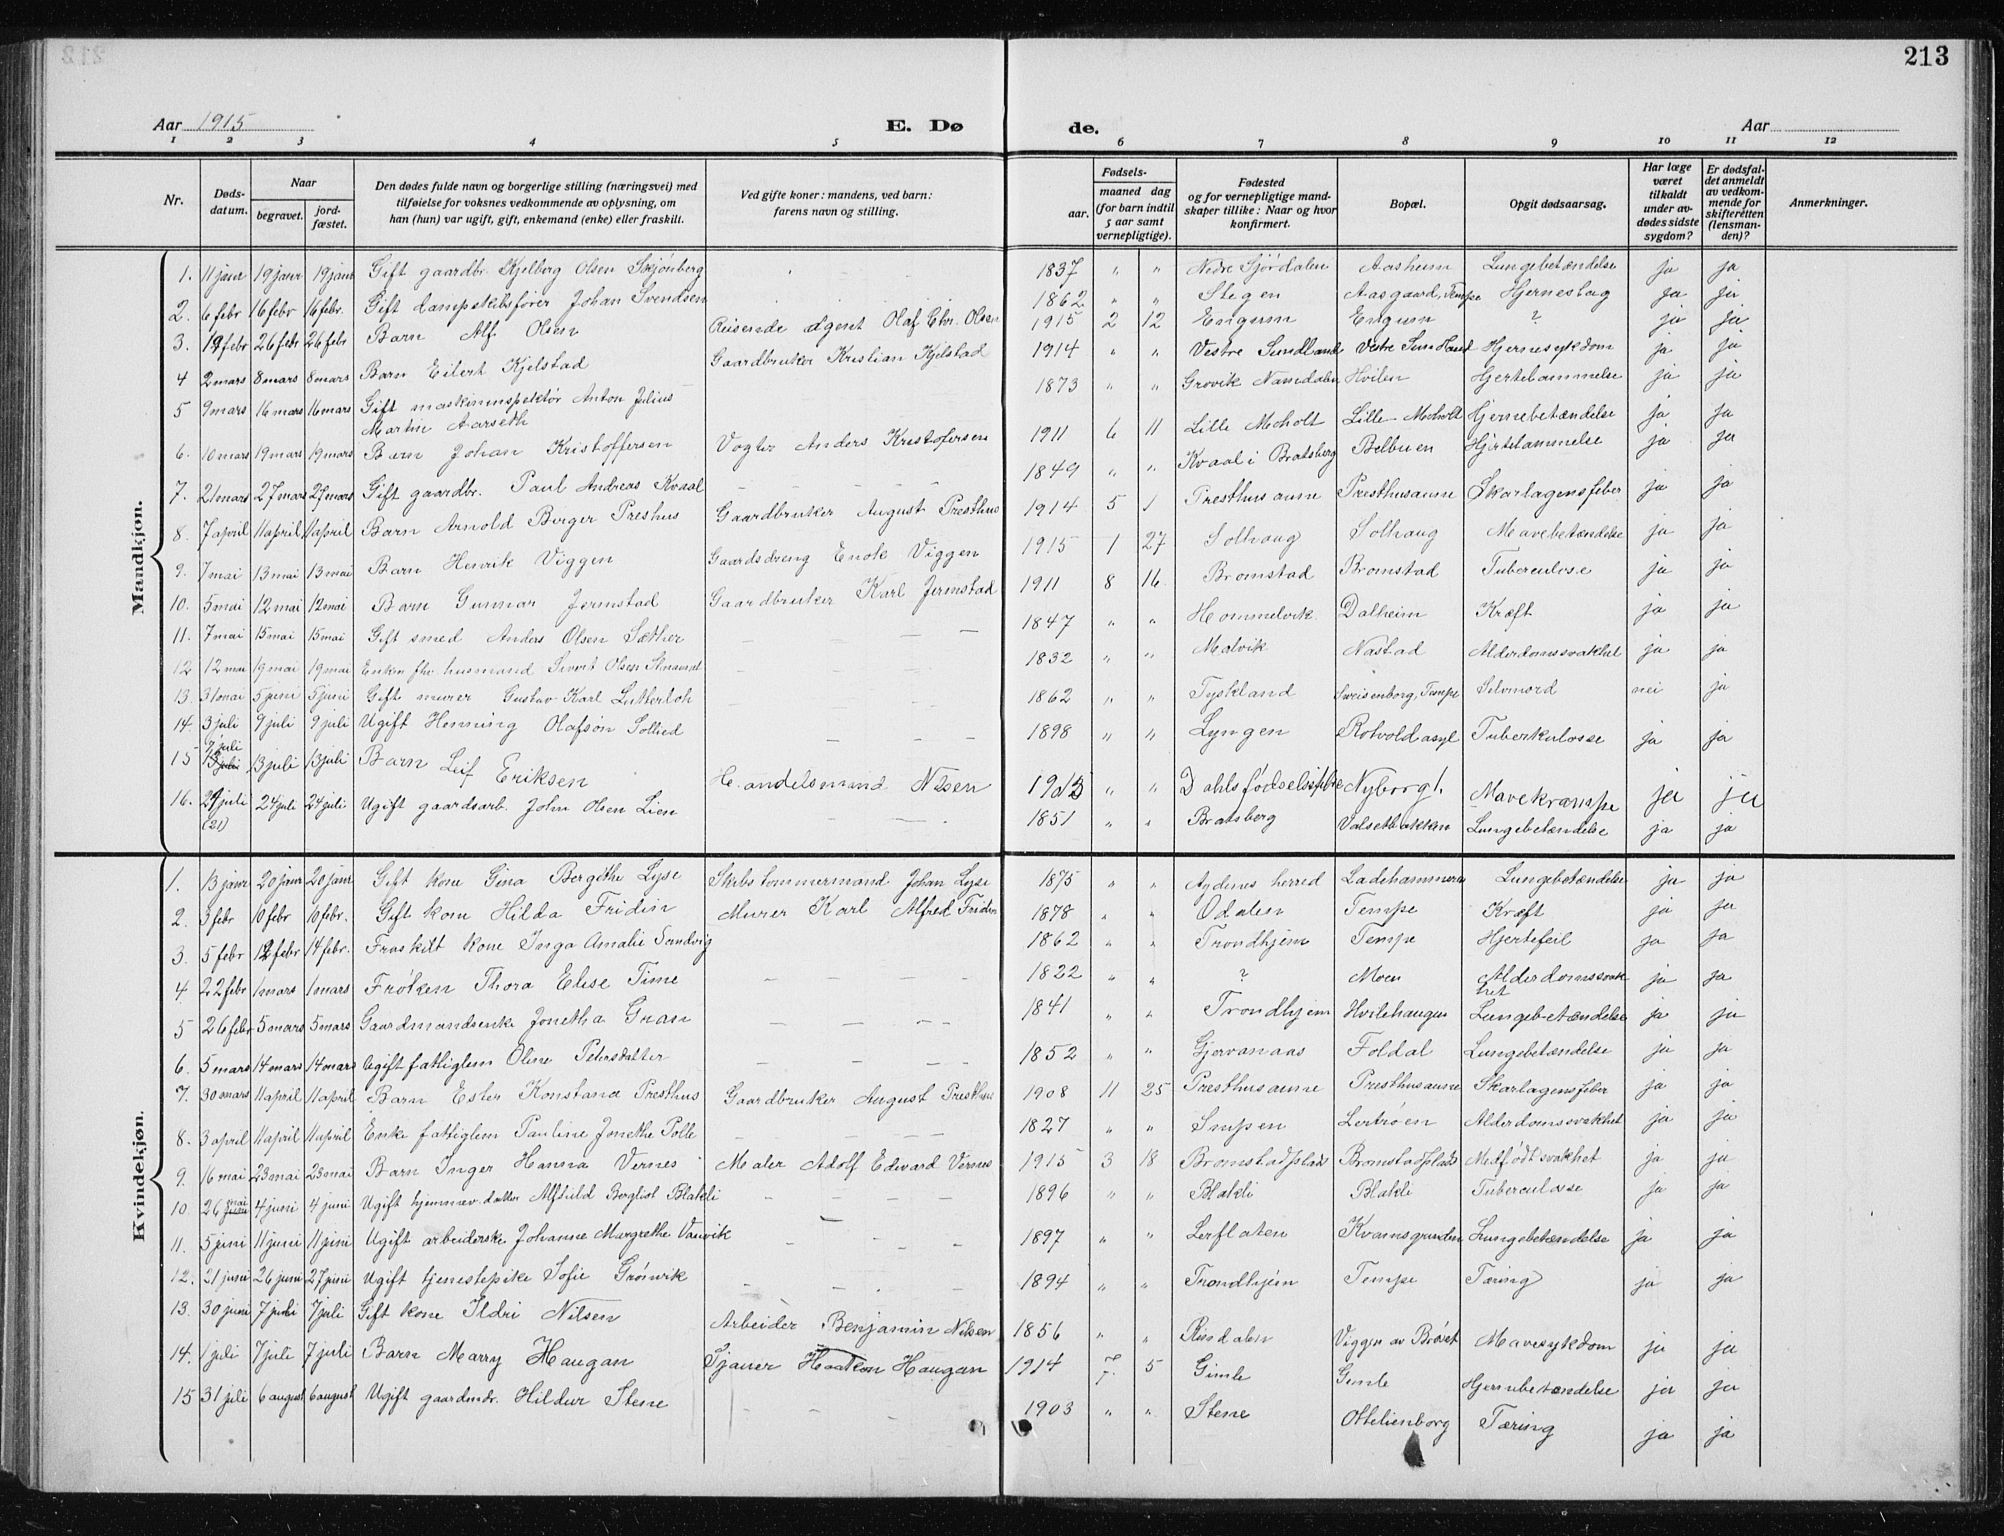 213
Aar 1915
E. Dø de.
Aar
1 2 3 4 5 6 7 8 9 10 11 12
Nr.
Døds-
datum.
Naar
begravet.
jord-
fæstet.
Den dødes fulde navn og borgerlige stilling (næringsvei) med
tilføielse for voksnes vedkommende av oplysning, om
han (hun) var ugift, gift, enkemand (enke) eller fraskilt.
Ved gifte koner: mandens, ved barn:
farens navn og stilling.
Fødsels-
aar.
maaned dag
(for barn indtil
5 aar samt
vernepligtige).
Fødested
og for vernepligtige mand-
skaper tillike: Naar og hvor
konfirmert.
Bopæl.
Opgit dødsaarsag.
Har læge
været
tilkaldt
under av-
dødes sidste
sygdom?
Er dødsfal-
det anmeldt
av vedkom-
mende for
skifteretten
(lensman-
den)?
Anmerkninger.
Mandkjøn.
1. 11 janr 19 janr 19 janr Gift gaardbr. Kjelberg Olsen Skjønberg 1837 " " Nedre Sjördalen Aasheim Lungebetændelse ja ja
2. 6 febr 16 febr 16 febr. Gift dampskibsfører Johan Svendsen 1862 " " Stegen Aasgaard, Tempe Hjerneslag ja ja
3. 19 febr 26 febr 26 febr Barn Alf Olsen Reisende agent Olaf Chr. Olsen 1915 2 12 Engum Engum ? ja ja
4 2 mars 8 mars 8 mars Barn Eilert Kjelstad Gaardbruker Kristian Kjelstad 1914 " " Vestre Sundland Vestre Sundland Hjernesykdom ja ja
5 9 mars 16 mars 16 mars Gift maskininspektør Anton Julius
Martin Aarseth 1873 " " Grovik Namdalen Hvilen Hjertelammelse ja ja
6. 10 mars 19 mars 19 mars Barn Johan Kristoffersen Vogter Anders Kristofersen 1911 6 11 Lille Moholt Lille Moholt Hjernebetændelse ja ja
7. 21 mars 27 mars 27 mars Gift gaardbr. Paul Andreas Kvaal 1849 " " Kvaal i Bratsberg Belbuen Hjertelammelse ja ja
8. 7 april 11 april 11 april Barn Arnold Birger Presthus Gaardbruker August Presthus 1914 5 1 Presthusaune Presthusaune Skarlagensfeber ja ja
9. 7 mai 13 mai 13 mai Barn Henrik Viggen Gaardsdreng Enok Viggen 1915 1 27 Solhaug Solhaug Mavebetændelse ja ja
10. 5 mai 12 mai 12 mai Barn Gunnar Jermstad Gaardbruker Karl Jermstad 1911 8 16 Bromstad Bromstad Tuberculose ja ja
11. 7 mai 15 mai 15 mai Gift smed Anders Olsen Sæther 1847 " " Hommelvik Dalheim Kræft ja ja
12 12 mai 19 mai 19 mai Enkem fhv. husmand Sivert Olsen 1832 " " Malvik Nastad Alderdomssvakhet ja ja
13. 31 mai 5 juni 5 juni Gift murer Gustav Karl Lutterloh 1862 " " Tyskland Sveisenborg, Tempe Selvmord nei ja
14. 3 juli 9 juli 9 juli Ugift Henning Olafsøn Sollied 1898 " " Lyngen Rotvold asyl Tuberkulose ja ja
15 7 juli 13 juli 13 juli 13 juli Barn Leif Eriksen Handelsmand Nilsen 1915 " " Dahls fødselsstiftelse Nyborg Mavekrampe ja ja
16. 21 juli (21) 24 juli 24 juli Ugift gaardsarb. John Olsen Lien 1851 " " Bratsberg Valsetbakken Lungebetændelse ja ja
Kvindekjøn.
1. 13 janr 20 janr 20 janr Gift kone Gina Bergithe Lyse Skibstømmermand Johan Lyse 1875 " " Aydenes herred Ladehammeren Lungebetændelse ja ja
2. 3 febr 10 febr 10 febr. Gift kone Hilda Fridin Murer Karl Alfred Fridin 1878 " " Odalen Tempe Kræft ja ja
3. 5 febr 12 febr 14 febr. Fraskilt kone Inga Amalie Sandvig 1862 " " Trondhjem Tempe Hjertefeil ja ja
4 22 febr 1 mars 1 mars Frøken Thora Elise Time 1822 " " ? Moen Alderdomssvak
het ja ja
5 26 febr 5 mars 5 mars Gaardmandsenke Jonetha Gran 1841 " " Trondhjem Hvilehaugen Lungebetændelse ja ja
6. 5 mars 14 mars 14 mars Ugift fattiglem Oline Petersdatter 1852 " " Gjervanaas Foldal Lungebetændelse ja ja
7. 30 mars 11 april 11 april Barn Ester Konstana Presthus Gaardbruker August Presthus 1908 11 25 Presthusaune Presthusaune Skarlagensfeber ja ja
8. 3 april 11 april 11 april Enke fattiglem Pauline Jonethe Polle 1827 " " Impen Lertrøen Alderdomssvakhet ja ja
9. 16 mai 23 mai 23 mai Barn Inger Hanna Vernes Maler Adolf Edward Vernes 1915 3 18 Bromstadplads Bromstadplads Medfødt svakhet ja ja
10 26 mai juni 4 juni 4 juni Ugift hjemmev. datter Alfhild Bergliot Blakli 1896 " " Blakli Blakli Tuberculose ja ja
11. 5 juni 11 juni 11 juni Ugift arbeiderske Johanne Margrethe Vanvik 1897 " " Lerflaten Kvamsgrunden Lungebetændelse ja ja
12. 21 juni 26 juni 27 juni Ugift tjenestepike Sofie Grønvik 1894 " " Trondhjem Tempe Tæring ja ja
13. 30 juni 7 juli 7 juli Gift kone Ildri Nilsen Arbeider Benjamin Nilsen 1856 " " Rindalen Viggen av Brøset Mavesykdom ja ja
14. 1 juli 7 juli 7 juli Barn Marry Haugan Sjauer Haakon Haugan 1914 7. 5 Gimle Gimle Hjernebetændelse ja ja
15 31 juli 6 august 6 august Ugift gaardmdr. Hildur Stene 1903 " " Stene Ottilienborg Tæring ja ja